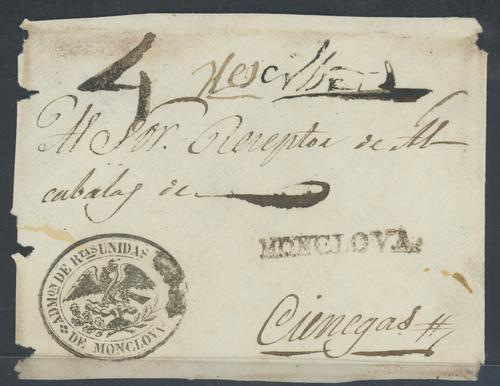 4
Al Sor. Receptor de Al
cabalas de
MONCLOVA.
ADMON DE RTAS UNIDAS
DE MONCLOVA
Cienegas #